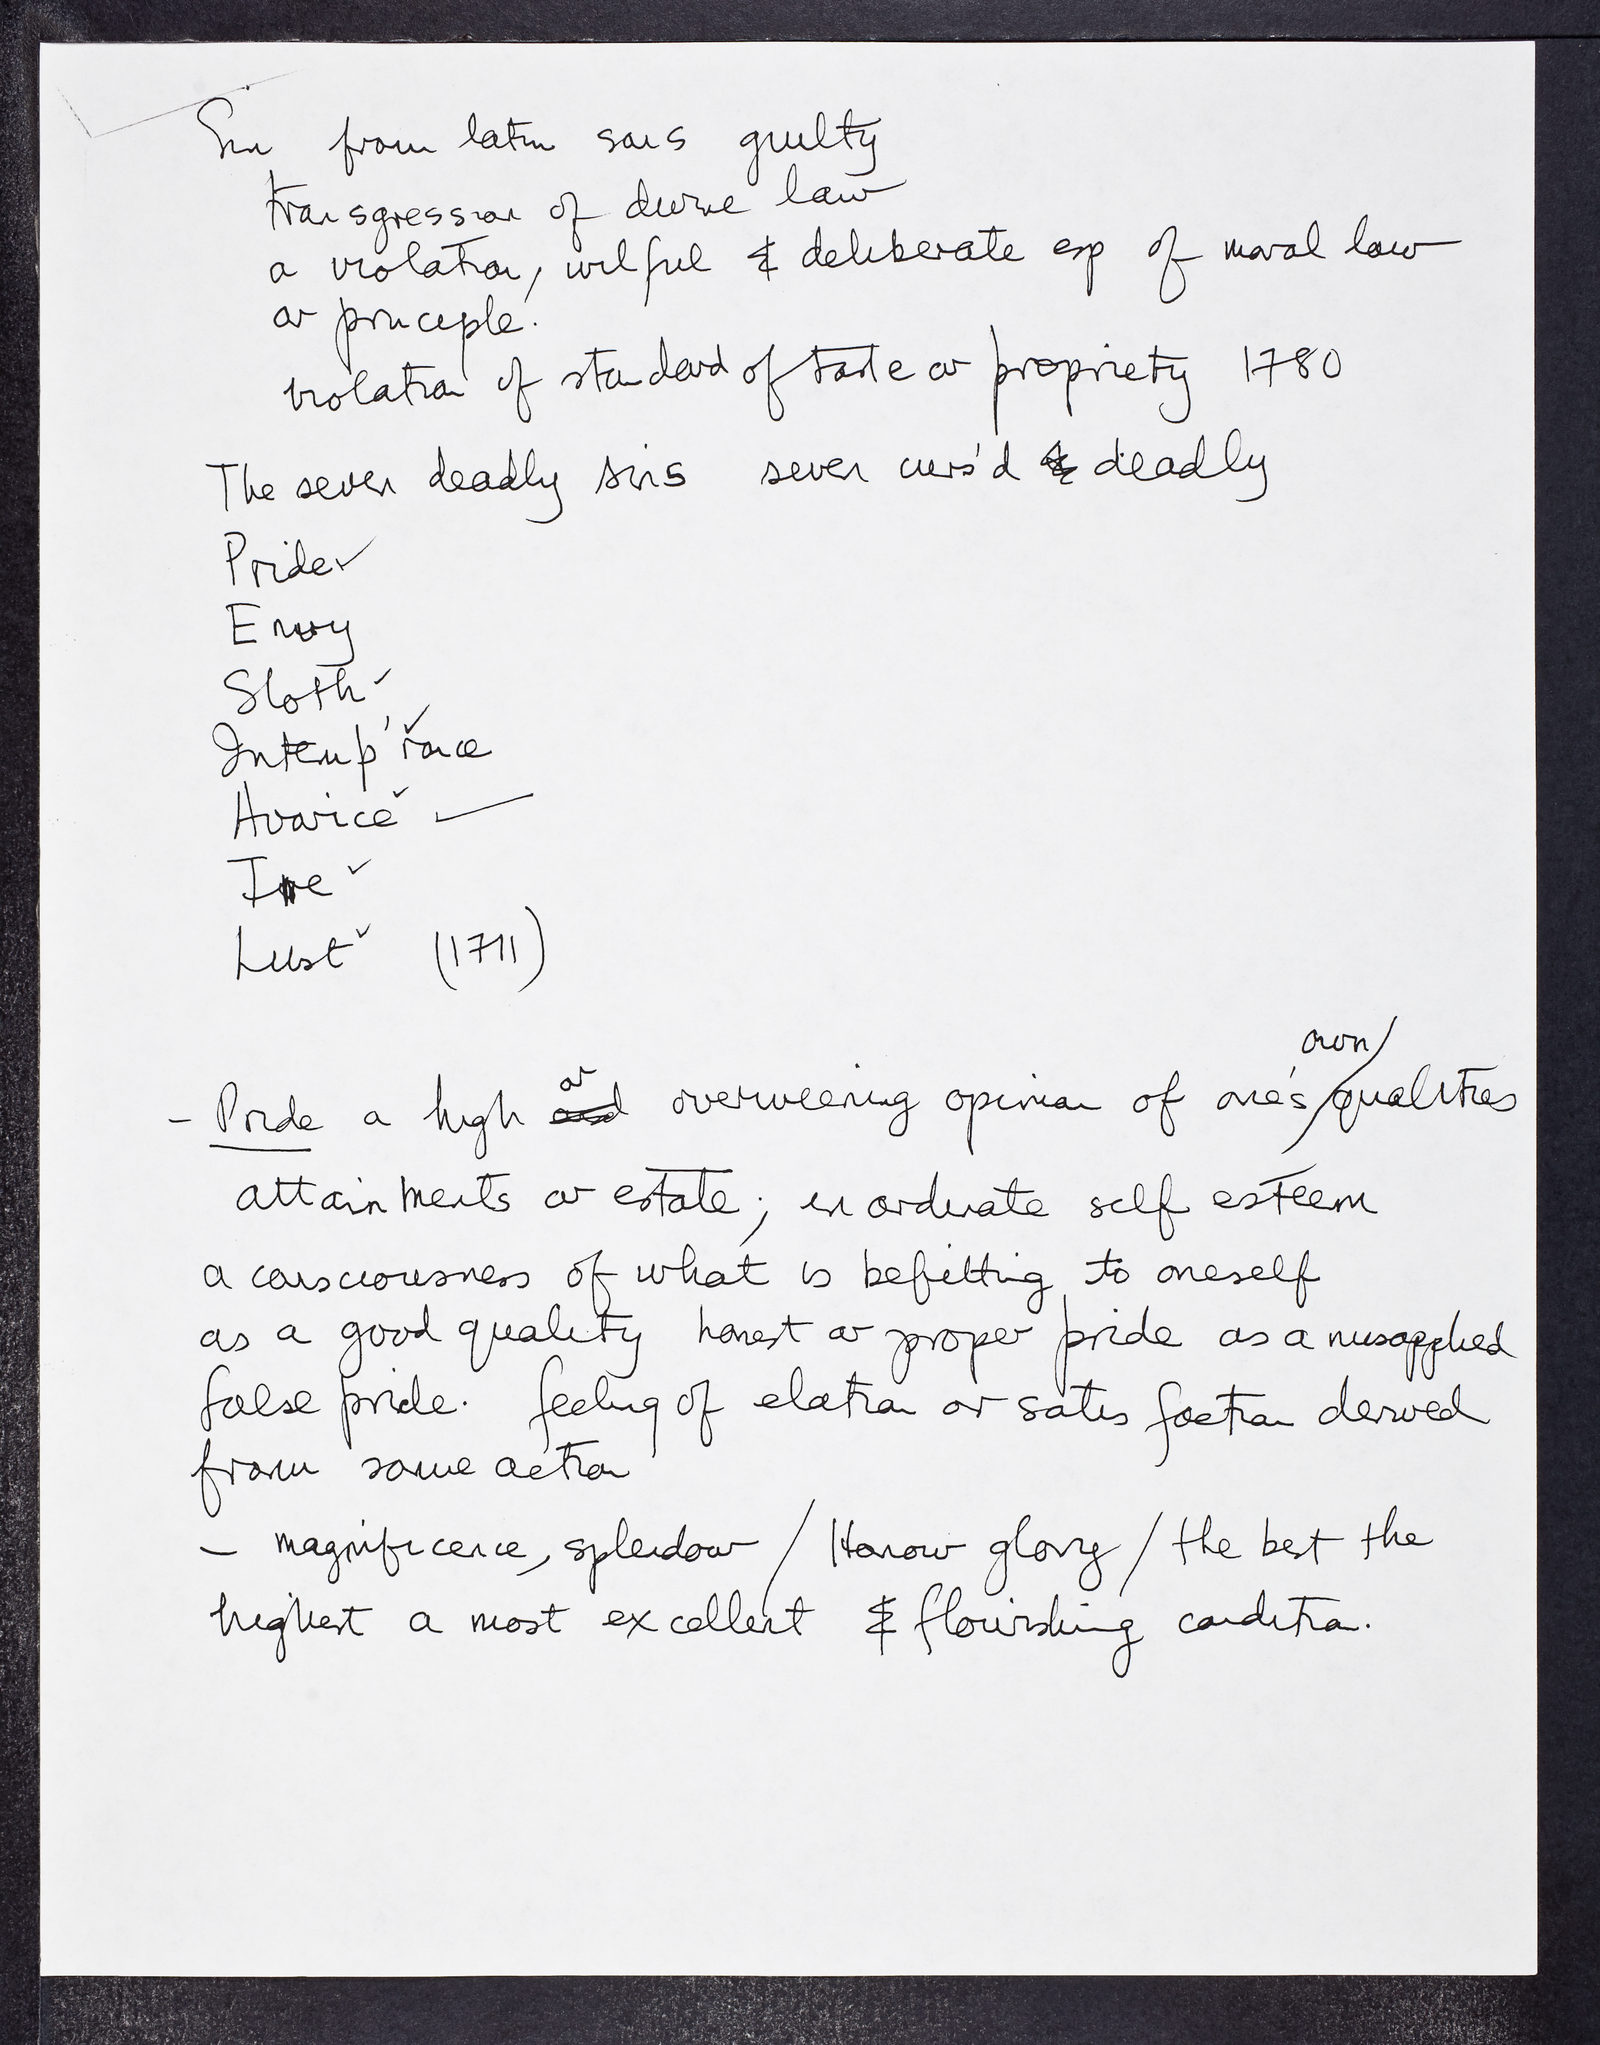 Sin from latin sons guilty
transgression of divine law
a violation, wilful & deliberate esp of moral law
or principle.
violation of standard of taste or propriety 1780
The seven deadly sins seven curs'd & deadly
Pride ✓
Envy
Sloth ✓
Intemp'rance ✓
Avarice ✓ —
Ire ✓
Lust ✓ (1711)
own/
or
- Pride a high and overweening opinion of one's / qualities
attainments or estate; inordinate self esteem
a consciousness of what is befitting to oneself
as a good quality honest or proper pride as a misapplied
false pride. feeling of elation or satisfaction derived
from some action
- magnificence, splendour / Honour glory / the best the
highest a most excellent & flourishing condition.